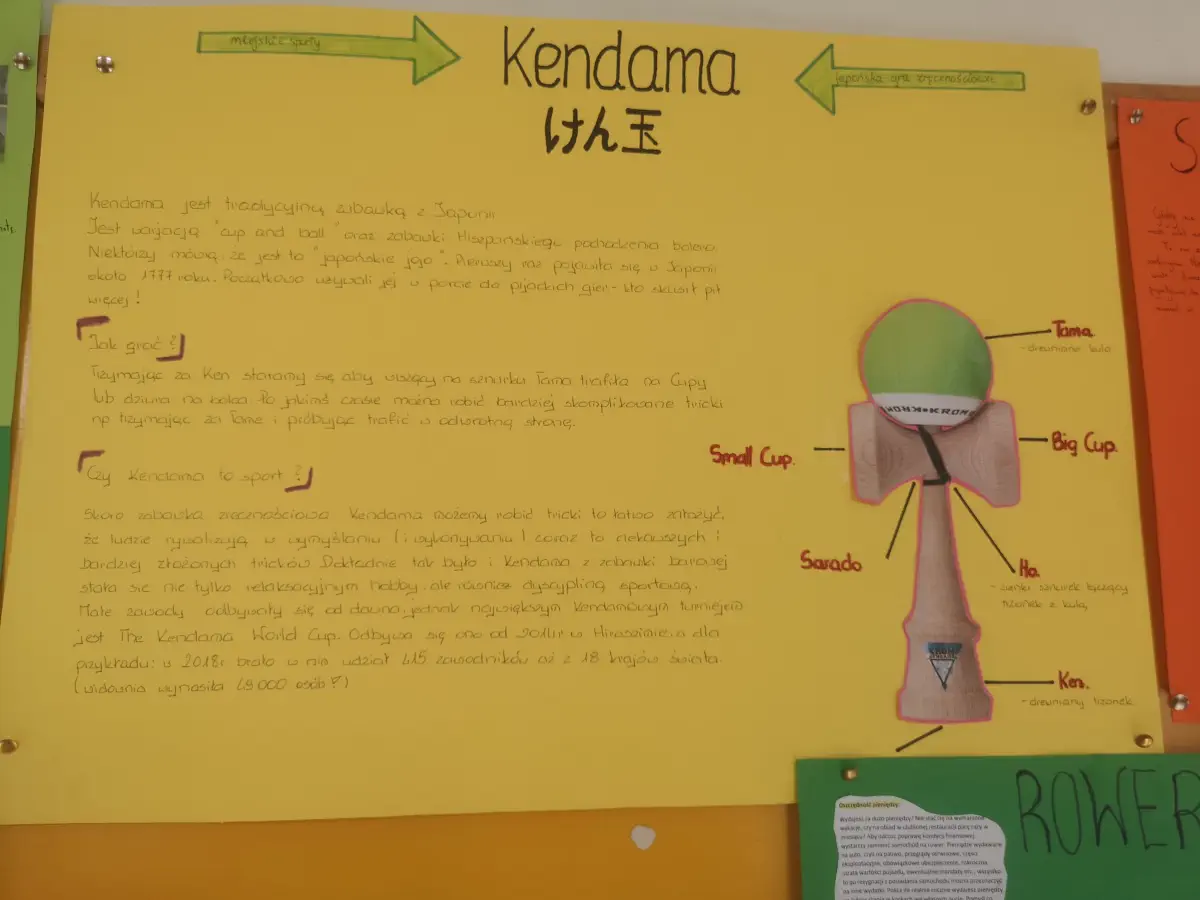 miejskie sporty
Kendama
japońska gra zręcznościowa
けん玉
Kendama jest tradycyjną zabawką z Japonii
Jest wariacją "cup and ball" oraz zabawki Hiszpańskiego pochodzenia bolero.
Niektórzy mówią, że jest to "japońskie jojo". Pierwszy raz pojawiła się w Japonii
około 1777 roku. Początkowo używali jej w porcie do pijackich gier - kto skusił pił
więcej!
Jak grać?
Trzymając za Ken staramy się aby wiszący na sznurku Tama trafiła na Cupy
lub dziurą na bolca. Po jakimś czasie można robić bardziej skomplikowane tricki
np trzymając za Tame i próbując trafić w odwrotną stronę.
Czy Kendama to sport?
Skoro zabawką zręcznościową Kendama możemy robić tricki to łatwo założyć,
że ludzie rywalizują w wymyślaniu (i wykonywaniu) coraz to ciekawszych i
bardziej złożonych tricków. Dokładnie tak było i Kendama z zabawki barowej
stała się nie tylko relaksacyjnym hobby, ale również dyscypliną sportową.
Małe zawody odbywały się od dawna, jednak największym Kendamowym turniejem
jest The Kendama World Cup. Odbywa się ono od 2014r w Hiroszimie, a dla
przykładu: w 2018r brało w nim udział 415 zawodników aż z 18 krajów świata.
(widownia wynosiła 49 000 osób!)
Tama
- drewniana kula
KROM★KROM
Small Cup.
Big Cup.
Sarado
Ho.
- cienki sznurek łączący
trzonek z kulą
Ken.
- drewniany trzonek
ROWER
Oszczędność pieniędzy: